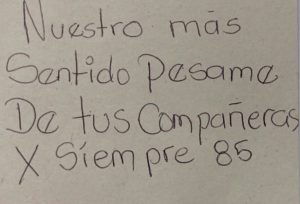 Nuestro más
Sentido Pesame
De tus Compañeras
X Siempre 85